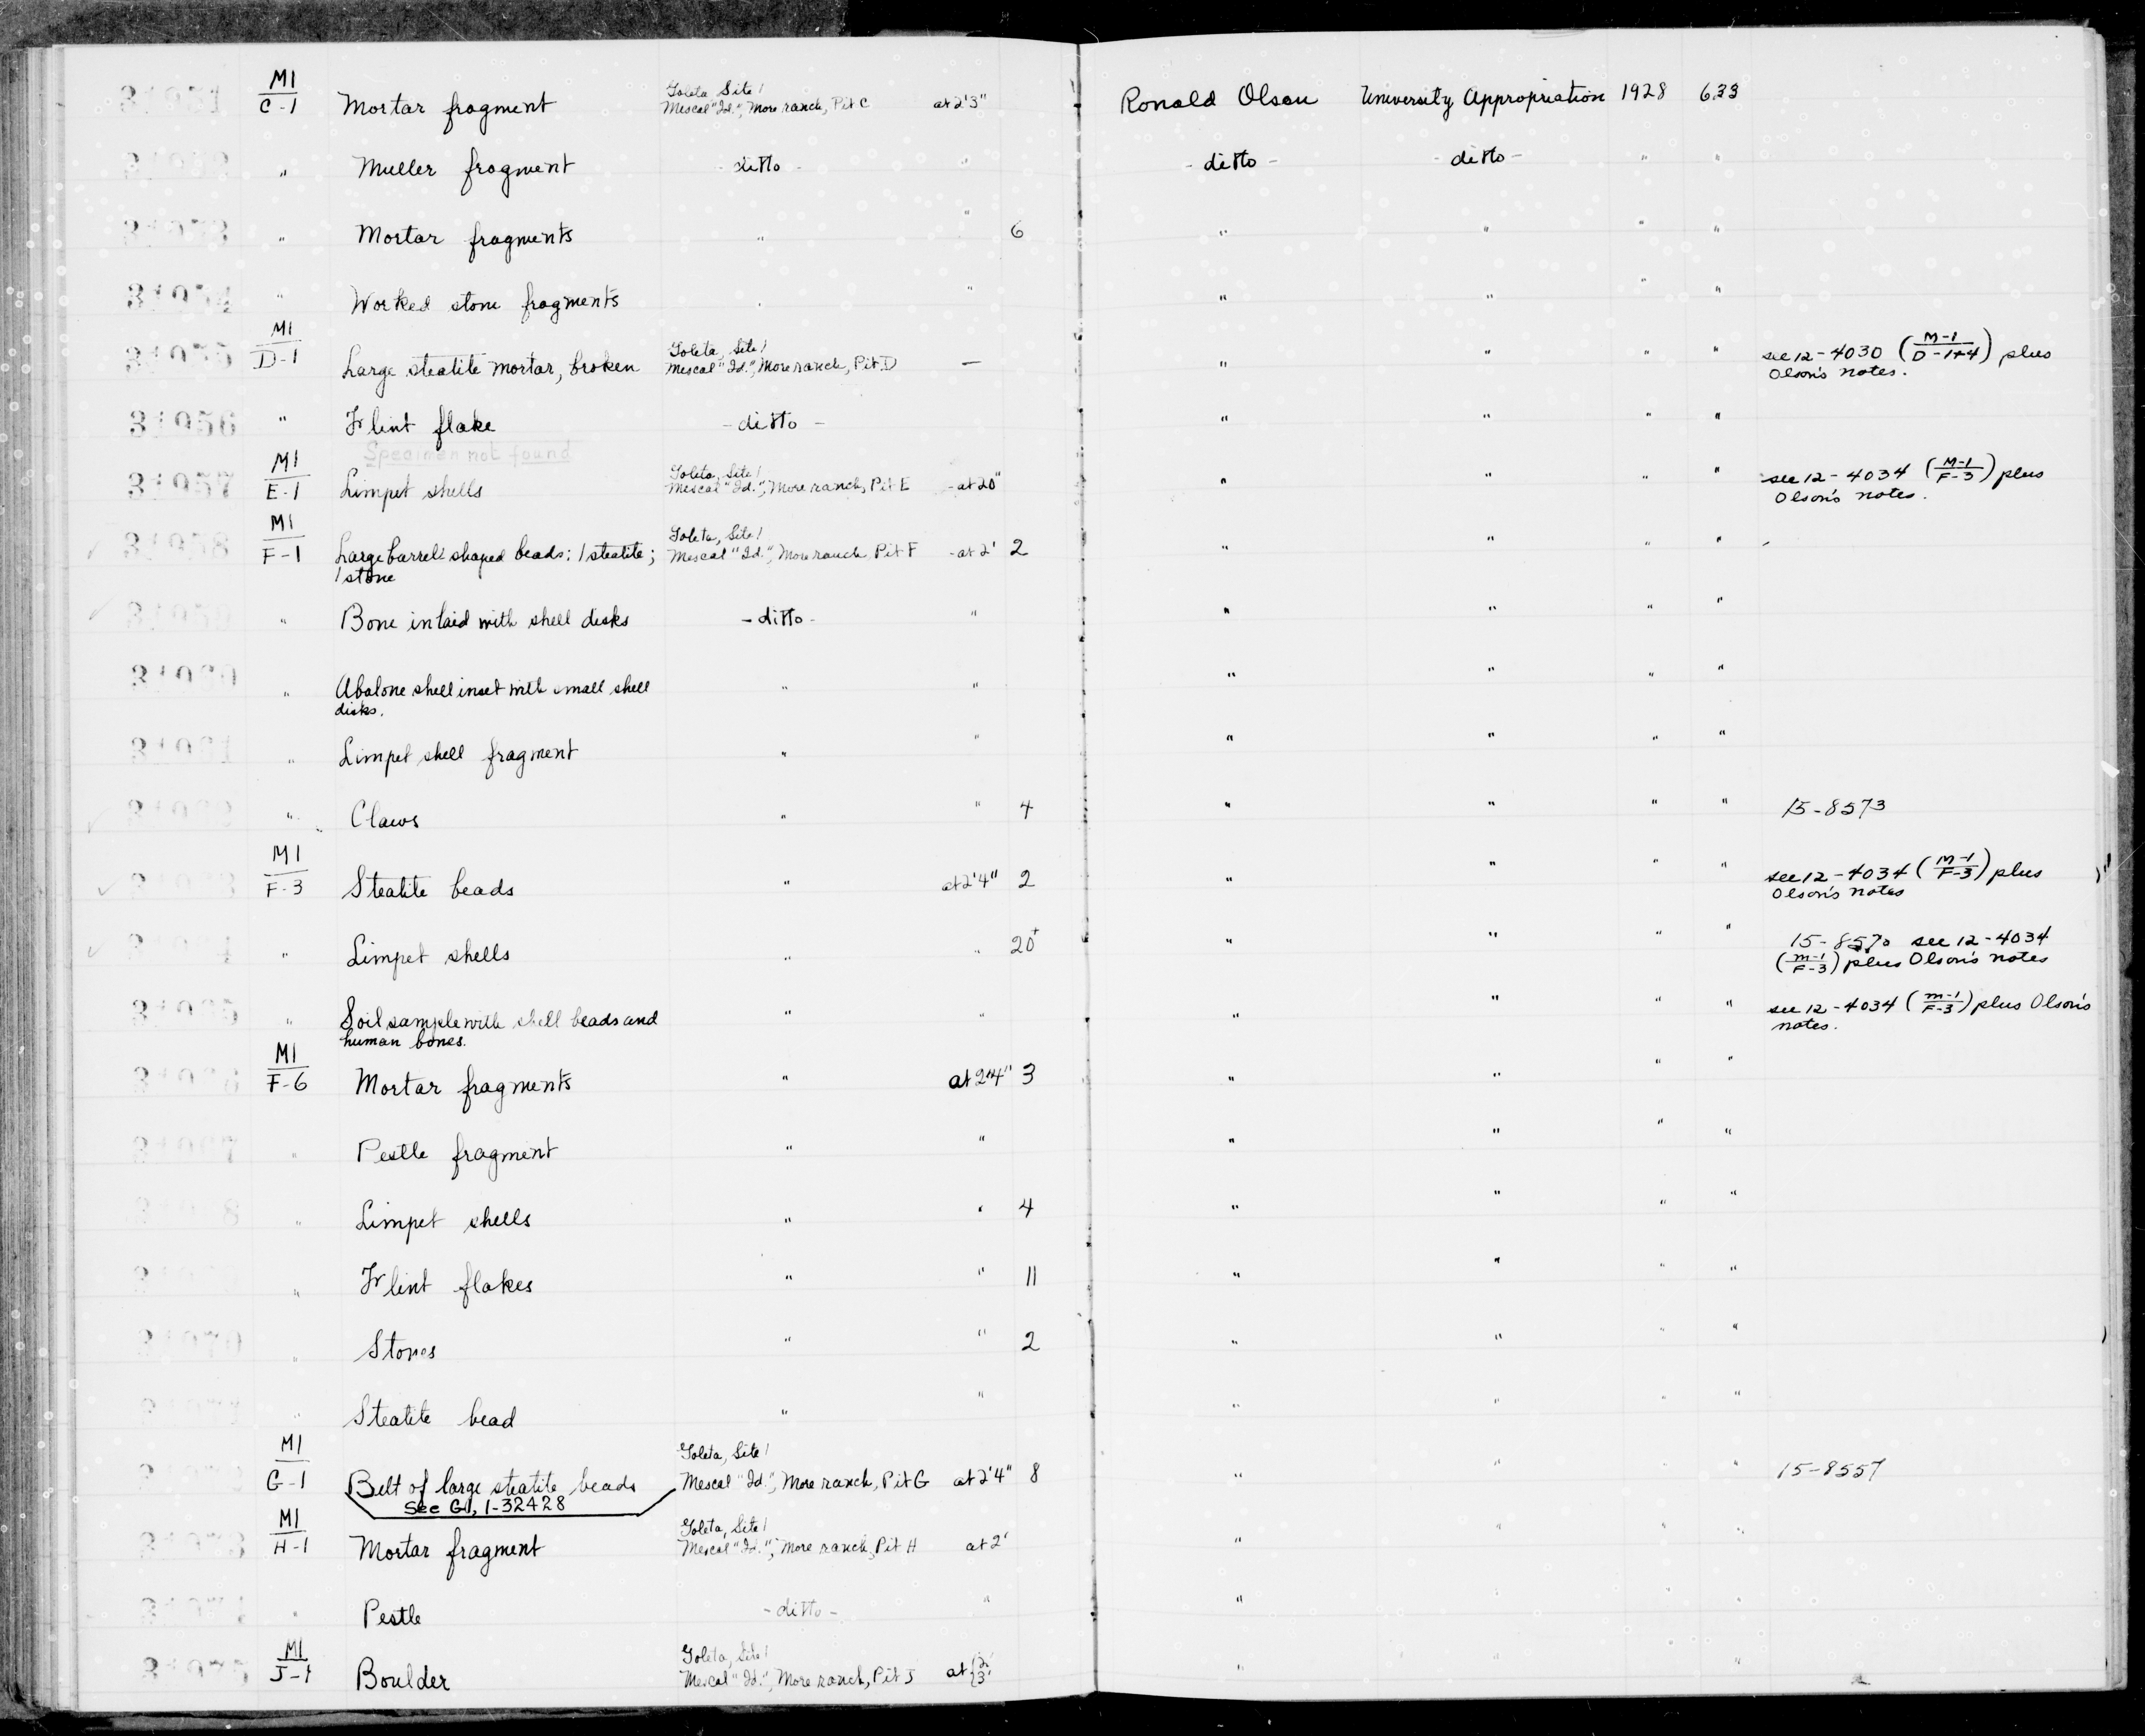 31951 M1 / C-1 Mortar fragment Goleta, Site 1 Mescal "Id.", More ranch, Pit C at 2'3" Ronald Olson University Appropriation 1928 633
" Muller fragment - ditto - " - ditto - - ditto - " "
" Mortar fragments " " 6 " " " "
31954 " Worked stone fragments " " " " " "
31955 M1 / D-1 Large steatite mortar, broken Goleta, Site 1 Mescal "Id.", More ranch, Pit D — " " " " see 12-4030 (M-1 / D-1+4) plus
Olson's notes.
31956 " Flint flake - ditto - " " " "
Specimen not found
31957 M1 / E-1 Limpet shells Goleta, Site 1 Mescal "Id.", More ranch, Pit E - at 20" " " " " see 12-4034 (M-1 / F-3) plus
Olson's notes.
31958 M1 / F-1 Large barrel shaped beads: 1 steatite; Goleta, Site 1 Mescal "Id.", More ranch, Pit F - at 2' 2 " " " "
1 stone
31959 " Bone inlaid with shell disks - ditto - " " " " "
31960 " Abalone shell inset with small shell " " " " " "
disks.
31961 " Limpet shell fragment " " " " " "
" Claws " " 4 " " " " 15-8573
M1 / F-3 Steatite beads " at 2'4" 2 " " " " see 12-4034 (M-1 / F-3) plus
Olson's notes
" Limpet shells " " 20+ " " " " 15-8570 see 12-4034
(M-1 / F-3) plus Olson's notes
31965 " Soil sample with shell beads and " " " " " " see 12-4034 (M-1 / F-3) plus Olson's
human bones. notes.
31966 M1 / F-6 Mortar fragments " at 2'4" 3 " " " "
31967 " Pestle fragment " " " " " "
" Limpet shells " " 4 " " " "
" Flint flakes " " 11 " " " "
31970 " Stones " " 2 " " " "
" Steatite bead " " " " " "
M1 / G-1 Belt of large steatite beads Goleta, Site 1 Mescal "Id.", More ranch, Pit G at 2'4" 8 " " " 15-8557
See G1, 1-32428
M1 / H-1 Mortar fragment Goleta, Site 1 Mescal "Id.", More ranch, Pit H at 2' " " " "
" Pestle - ditto - " " " " "
31975 M1 / J-1 Boulder Goleta, Site 1 Mescal "Id.", More ranch, Pit J at {2' 3' " " " "